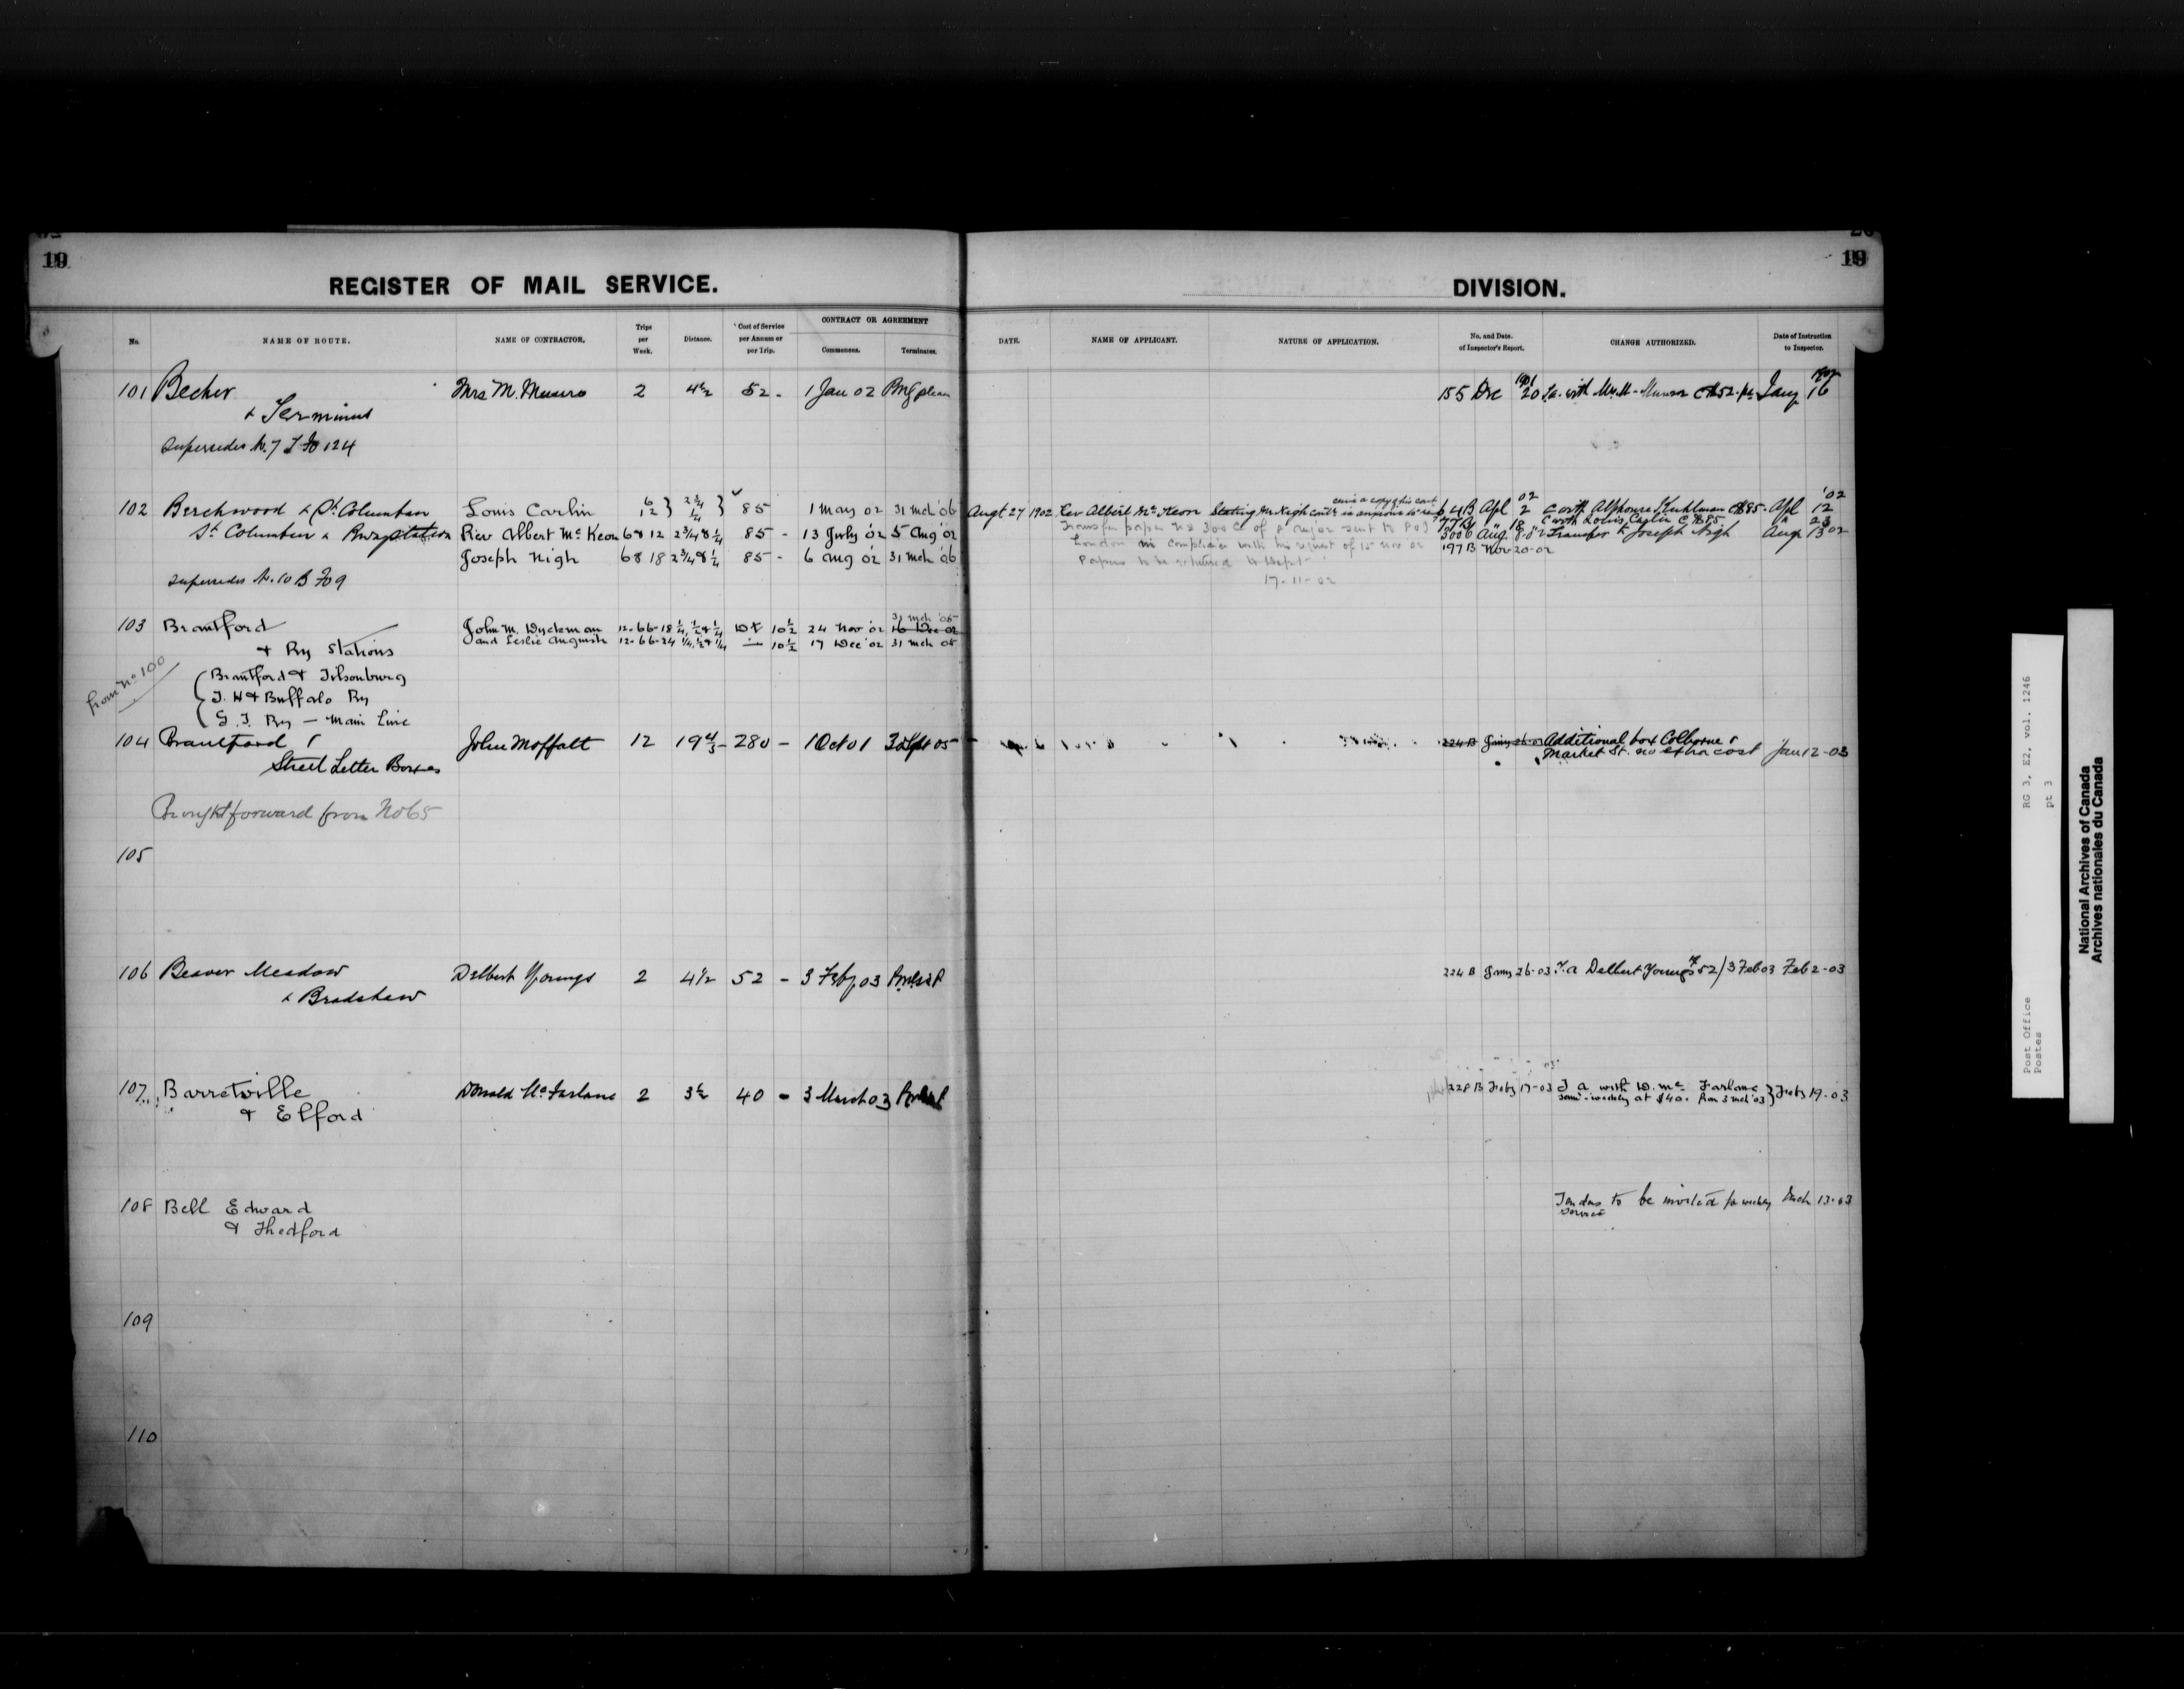 19
REGISTER OF MAIL SERVICE.
No.
NAME OF ROUTE.
NAME OF CONTRACTOR.
Trips per Week.
Distance.
Cost of Service per Annum or per Trip.
CONTRACT OR AGREEMENT
Commences.
Terminates.
101 Becher Mrs M. Munro 2 4½ 52 - 1 Jan 02
& Terminus
Supersedes No. 7 124
102 Beechwood & St Columban Louis Carlin 6 12 2¾ ¼ 85 1 May 02 31 Mch '06
St Columban & Ry station Rev Albert McKeon 6 & 12 2¾ & ¼ 85 - 13 July '02 5 Aug '02
Joseph Nigh 6 & 18 2¾ & ¼ 85 - 6 Aug '02 31 Mch '06
Supersedes No. 10 B Fo 9
31 Mch '05
103 Brantford John M. Wyckman 12-66-18 ¼, ½ & ¼ 10½ 24 Nov '02 16 Dec 02
& Ry Stations and Leslie Augustin 12-66-24 ¼, ½ & ¼ 10½ 17 Dec '02 31 Mch 05
from No 100
Brantford & Tilsonburg
T. H & Buffalo Ry
G. T. Ry - Main Line
104 Brantford John Moffatt 12 280 - 1 Oct 01 30 Sept 05
Street Letter Boxes
Brought forward from No 65
105
106 Beaver Meadow Delbert Youngs 2 4½ 52 - 3 Feby 03
& Bradshaw
107 Barretville Donald McFarlane 2 3½ 40 - 3 March 03
& Elford
108 Bell Edward
& Thedford
109
110
19
DIVISION.
DATE.
NAME OF APPLICANT.
NATURE OF APPLICATION.
No. and Date. of Inspector's Report.
CHANGE AUTHORIZED.
Date of Instruction to Inspector.
1901
155 Dec 20 T.a. with Mrs M. Munro @ $52. pa Jany 16
02 '02
Augt 27 1902 Rev Albert McKeon Stating Mr Nigh 64 B Apl 2 C with Alphonse Kuhlman @ $85 - Apl 12
77 B " 18 C with Louis Carlin @ $85 " 23
Transfer paper No 300 sent to P O I
300 B Aug. 8 - 02 Transfer to Joseph Nigh Aug 13 02
London in compliance with his request of 15 Nov 02 197 B Nov 20-02
Papers to be returned to Dept
17-11-02
224 B Jany 26-03 Additional box Colborne &
Market St. no extra cost Jan 12-03
224 B Jany 26-03 T.a Delbert Youngs $52 / 3 Feb 03 Feb 2-03
228 B Feby 17-03 T a with D. Mc Farlane Feby 19-03
semi-weekly at $40. from 3 Mch '03
Tenders to be invited for weekly Mch 13-03
service
RG 3, E2, vol. 1246
pt 3
Post Office
Postes
National Archives of Canada
Archives nationales du Canada